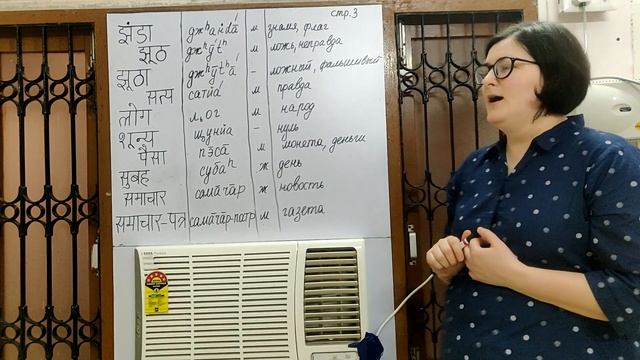 стр.3
झंडा джʰаṅда́ м знамя, флаг
झूठ джʰӯтʰ м ложь, неправда
झूठा джʰӯтʰа́ - ложный, фальшивый
सत्य сатйа м правда
लोग лог м народ
शून्य шӯнйа - нуль
पैसा пэсā м монета, деньги
सुबह субаʰ ж день
समाचार самāчāр ж новость
समाचार-पत्र самāчāр-патр м газета